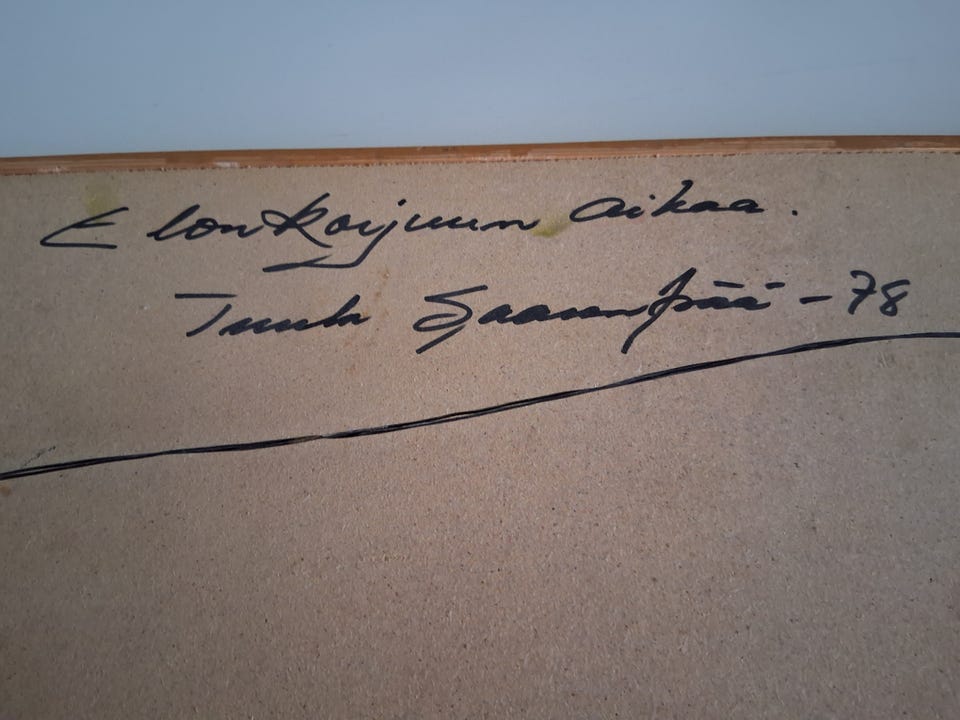 Elonkorjuun aikaa.
Tuula Saarenpää -78